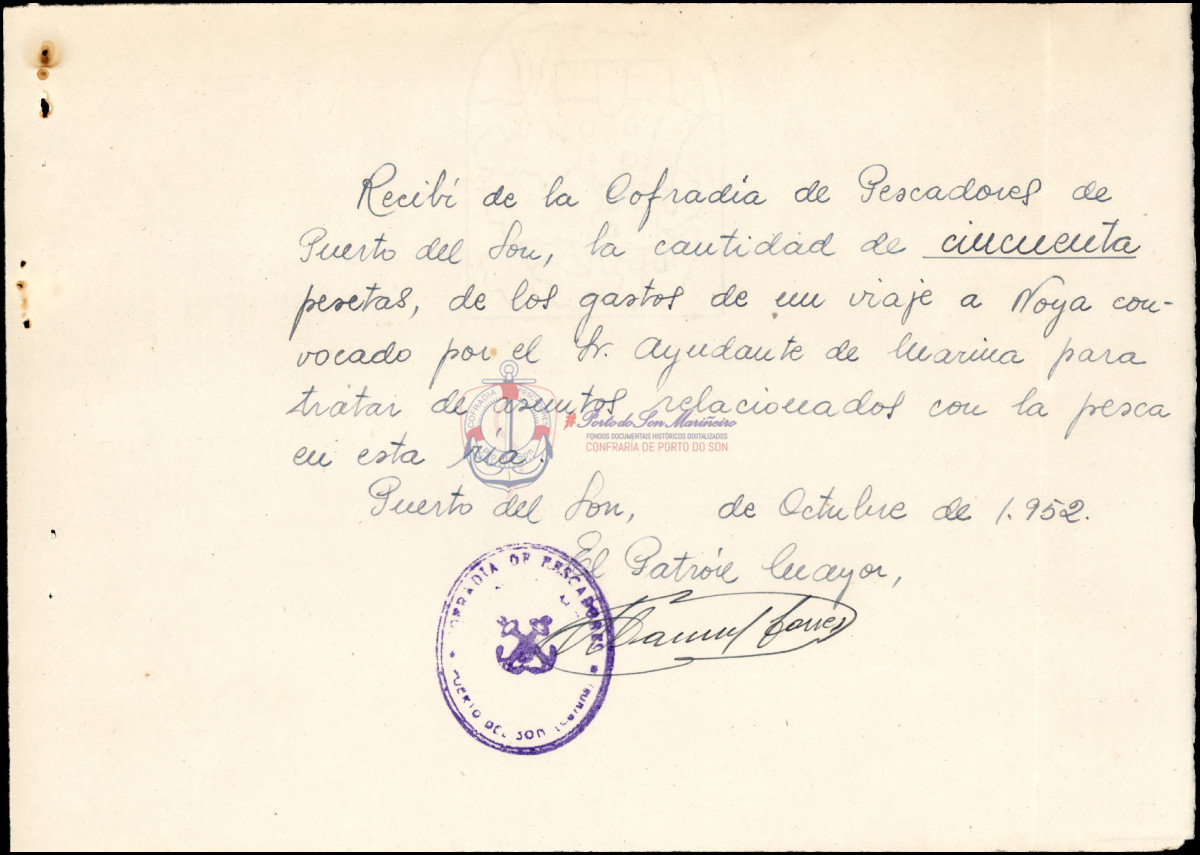 Recibí de la Cofradía de Pescadores de
Puerto del Son, la cantidad de cincuenta
pesetas, de los gastos de un viaje a Noya con-
vocado por el Sr. Ayudante de Marina para
tratar de asuntos relacionados con la pesca
en esta ría.
COFRADIA
#Porto do Son Mariñeiro
FONDOS DOCUMENTAIS HISTÓRICOS DIXITALIZADOS
CONFRARÍA DE PORTO DO SON
Puerto del Son, de Octubre de 1.952.
El Patrón Mayor,
Manuel Torres
COFRADIA DE PESCADORES
PUERTO DEL SON (Coruña)